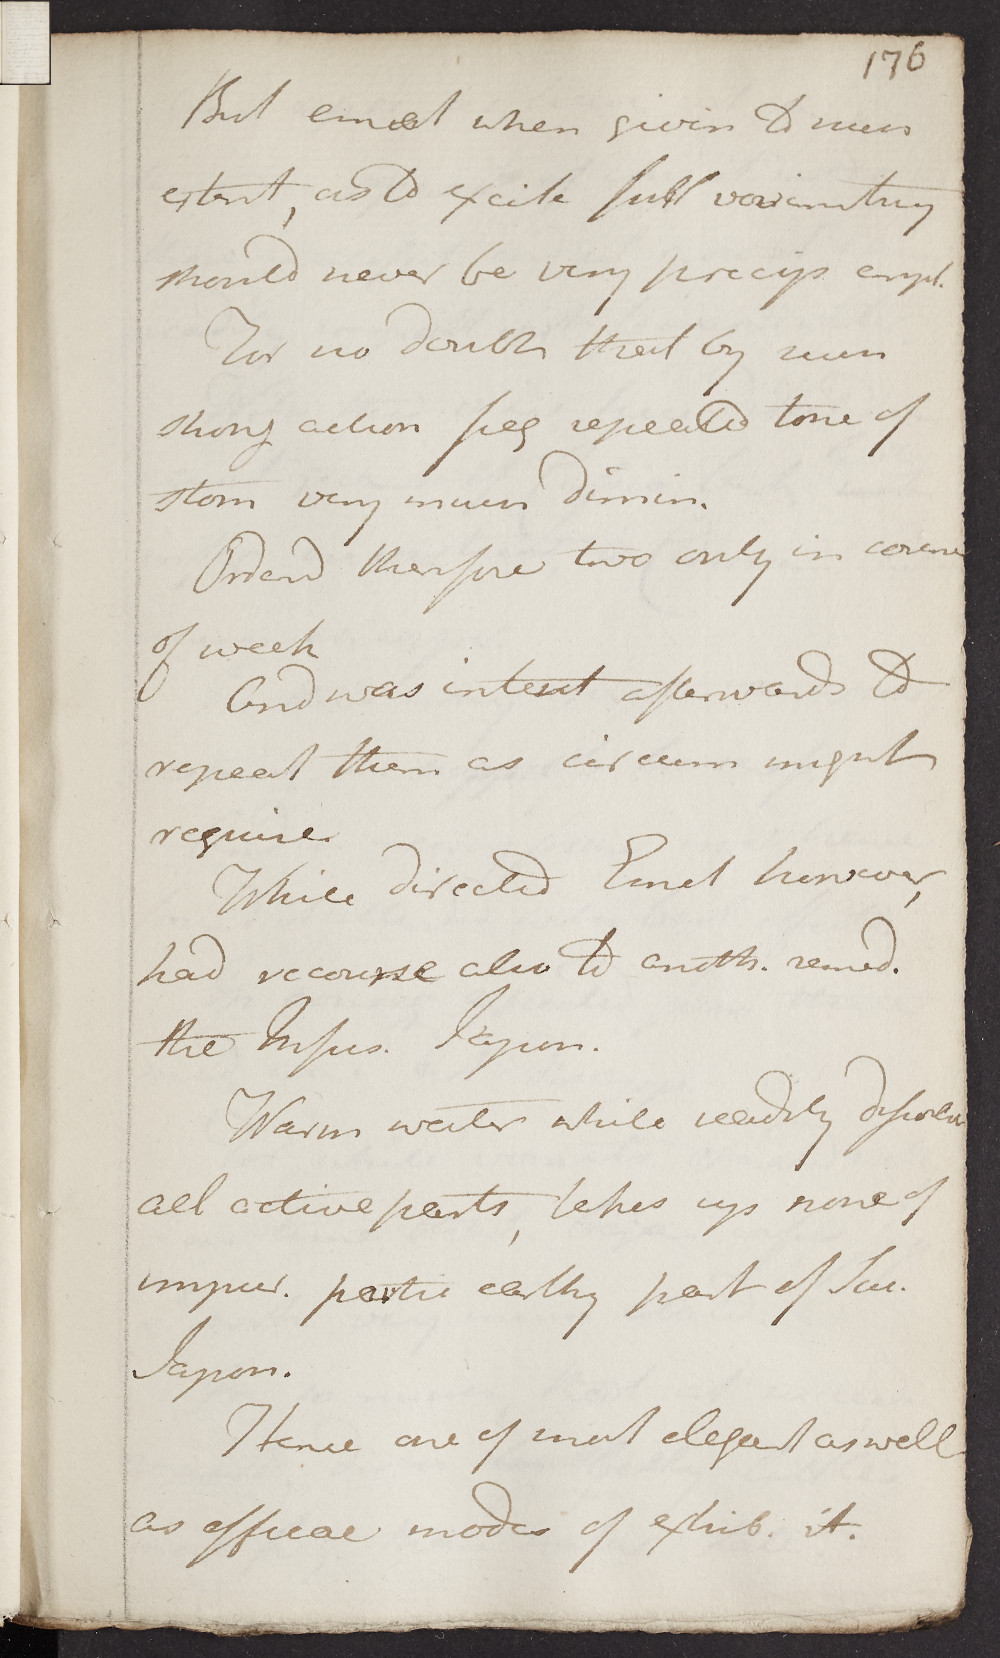 176
But emet when given to such
extent, as to excite full vomiting
should never be very precip. empl.
For no doubt that by such
strong action freq repeated tone of
stom very much dimin.
Orderd therefore two only in course
of week
And was intent afterwards to
repeat them as circum might
require
While directed Emet however,
had recourse also to anoth. remed.
the Infus. Japon.
Warm water while readily dissolves
all active parts, takes up none of
impur. earthy part of Suc.
Japon.
Hence one of most elegant as well
as efficac modes of exhib. it.